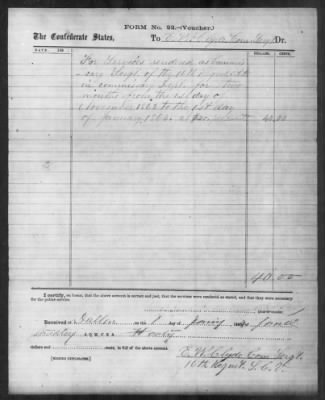 FORM NO. 22.—(Voucher.)
The Confederate States,
To E. W. Clyde Com Sergt Dr.
DATE. DOLLARS. CENTS.
For Services rendered as Commis-
sary Sergt of the 16th Regmt
in commissary Dept. for two
months from the 1st day of
November 1863 to the 1st day
of January 1864 at 40 00
40.00
I certify, on honor, that the above account is correct and just, that the services were rendered as stated, and that they were necessary
for the public service.
Received at the of
A. Q. M. C. S. A. Forty
dollars and cents, in full of the above account.
[SIGNED DUPLICATES.]
E. W. Clyde Com Sergt.
16th Regmt. S. C. V.